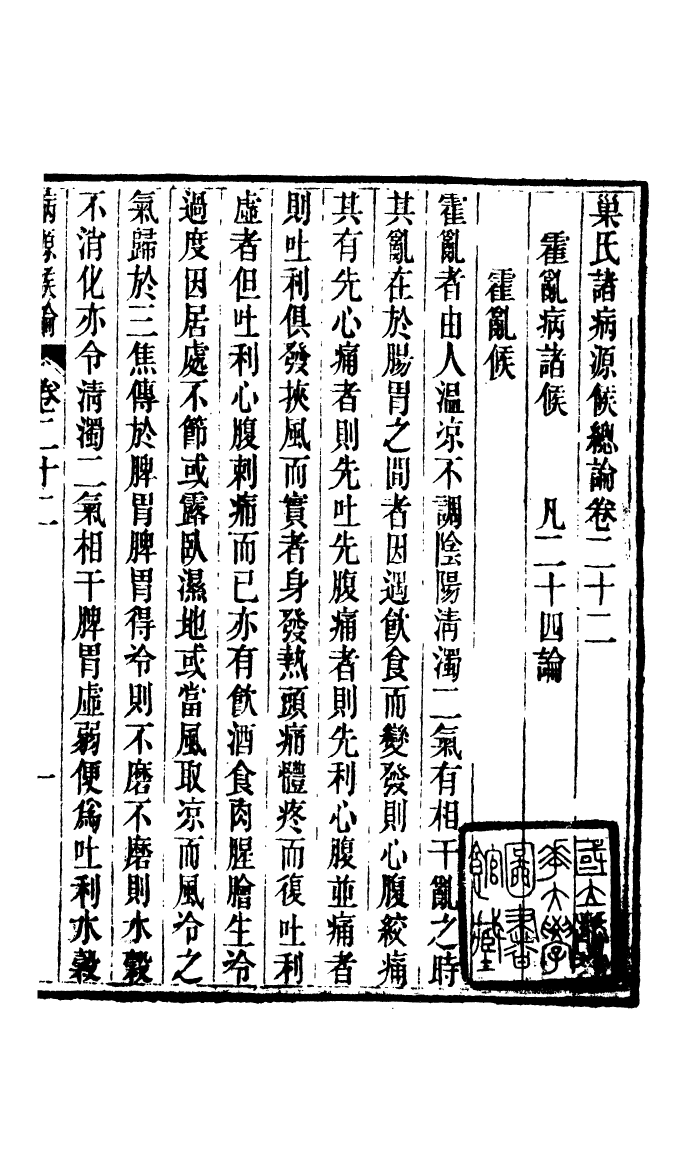 巢氏諸病源候總論卷二十二
霍亂病諸候　凡二十四論
霍亂候
霍亂者由人温凉不調陰陽清濁二氣有相干亂之時
其亂在於腸胃之間者因遇飲食而變發則心腹絞痛
其有先心痛者則先吐先腹痛者則先利心腹並痛者
則吐利俱發挾風而實者身發熱頭痛體疼而復吐利
虛者但吐利心腹刺痛而已亦有飲酒食肉腥膾生冷
過度因居處不節或露臥濕地或當風取凉而風冷之
氣歸於三焦傳於脾胃脾胃得冷則不磨不磨則水穀
不消化亦令清濁二氣相干脾胃虛弱便爲吐利水穀
病源候論　卷二十二　一
國立
大學
圖書
館藏